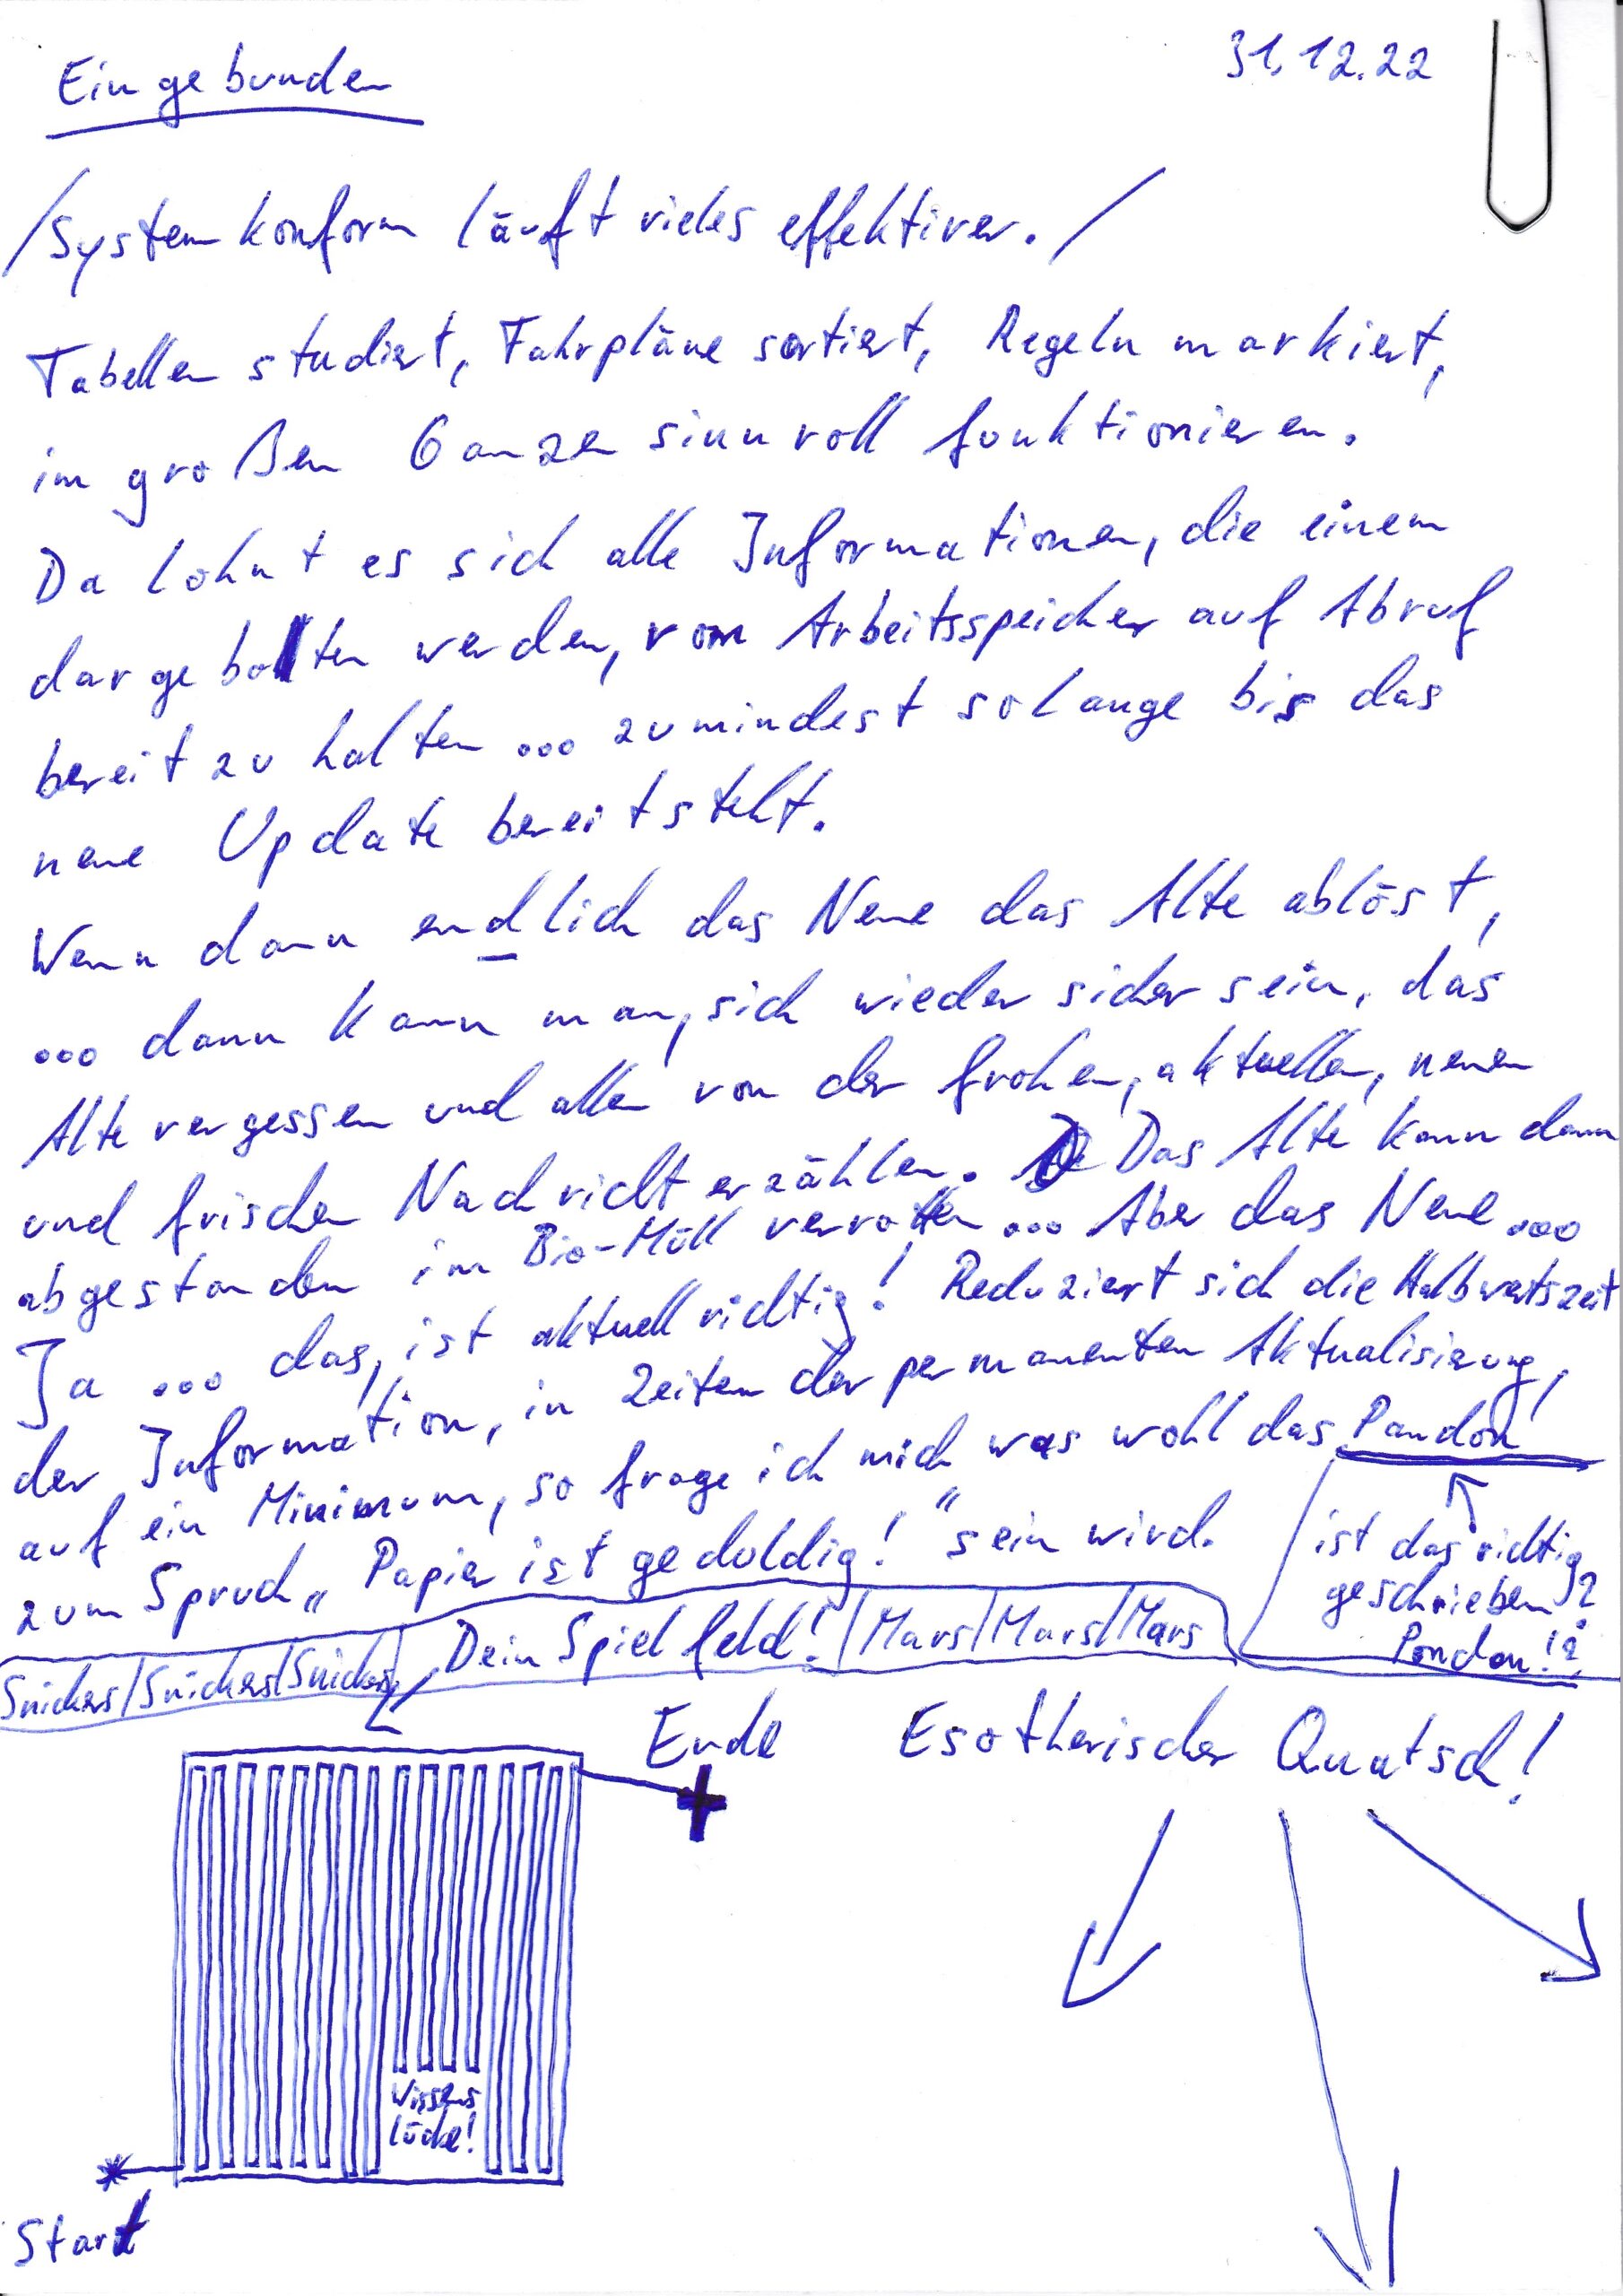 Eingebunden
31.12.22
/Systemkonform läuft vieles effektiver./
Tabellen studiert, Fahrpläne sortiert, Regeln markiert,
im großen Ganzen sinnvoll funktionieren.
Da lohnt es sich alle Informationen, die einem
dargeboten werden, vom Arbeitsspeicher auf Abruf
bereit zu halten ... zumindest solange bis das
neue Update bereitsteht.
Wenn dann endlich das Neue das Alte ablöst,
... dann kann man, sich wieder sicher sein, das
Alte vergessen und allen von der frohen, aktuellen, neuen
und frischen Nachricht erzählen. Das Alte kann dann
abgestanden im Bio-Müll verrotten ... Aber das Neue ...
Ja ... das, ist aktuell richtig! Reduziert sich die Halbwertszeit
der Information, in Zeiten der permanenten Aktualisierung,
auf ein Minimum, so frage ich mich was wohl das Pandon
zum Spruch „Papier ist geduldig!“ sein wird.
ist das richtig
geschrieben?
Pondon!?
Snickers/Snickers/Snickers/ Dein Spielfeld! /Mars/Mars/Mars
Ende
Esotherischer Quatsch!
Wissens
lücke!
Start